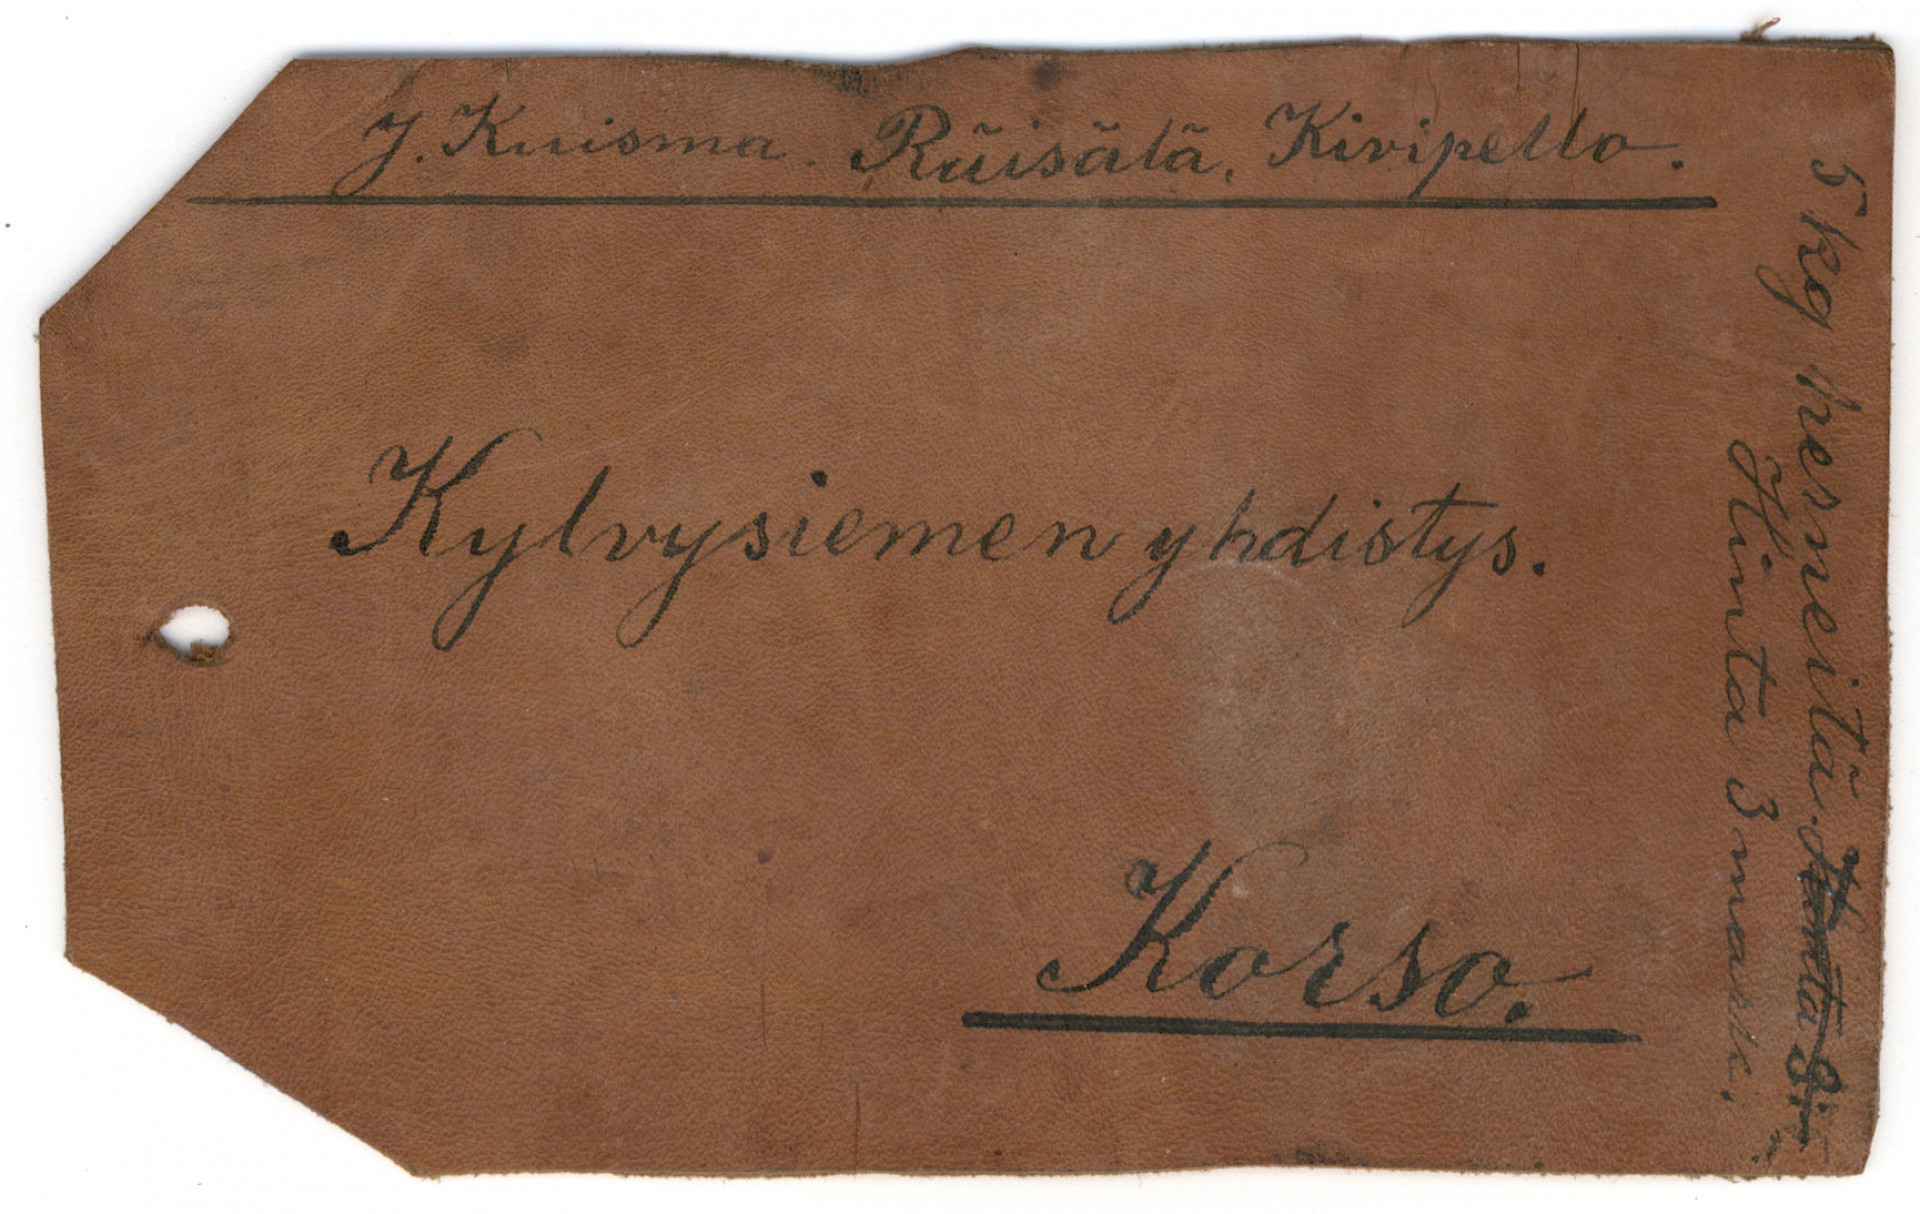 J. Kuisma. Räisälä, Kivipelto.
Kylvysiemen yhdistys.
Korso.
5 kg herneitä.
Hinta 3 mark.